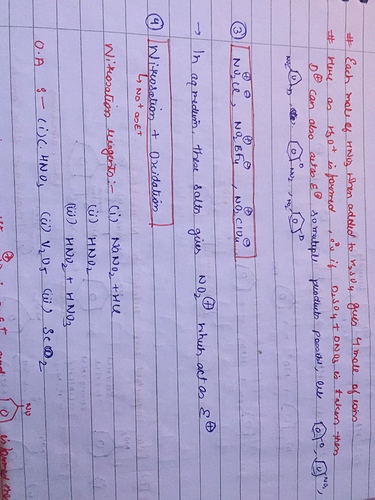 # Each mole of HNO3 when added to H2SO4 gives 4 mole of ions
# Here as H3O+ is formed, so if D2SO4 + DNO3 is taken then
D⊕ can also act as E⊕ so multiple products possible, like
NO2 D, NO2, D
③ NO2⊕Cl⊖, NO2⊕BF4⊖, NO2⊕ClO4⊖
→ In aq medium these salts gives NO2⊕ which act as E⊕
④ Nitrosation + Oxidation
↳ NO+ as E+
Nitrosation reagents :- (i) NaNO2 + HCl
(ii) HNO2
(iii) HNO2 + HNO3
O.A :- (i) C.HNO3 (ii) V2O5 (iii) SeO2
NO